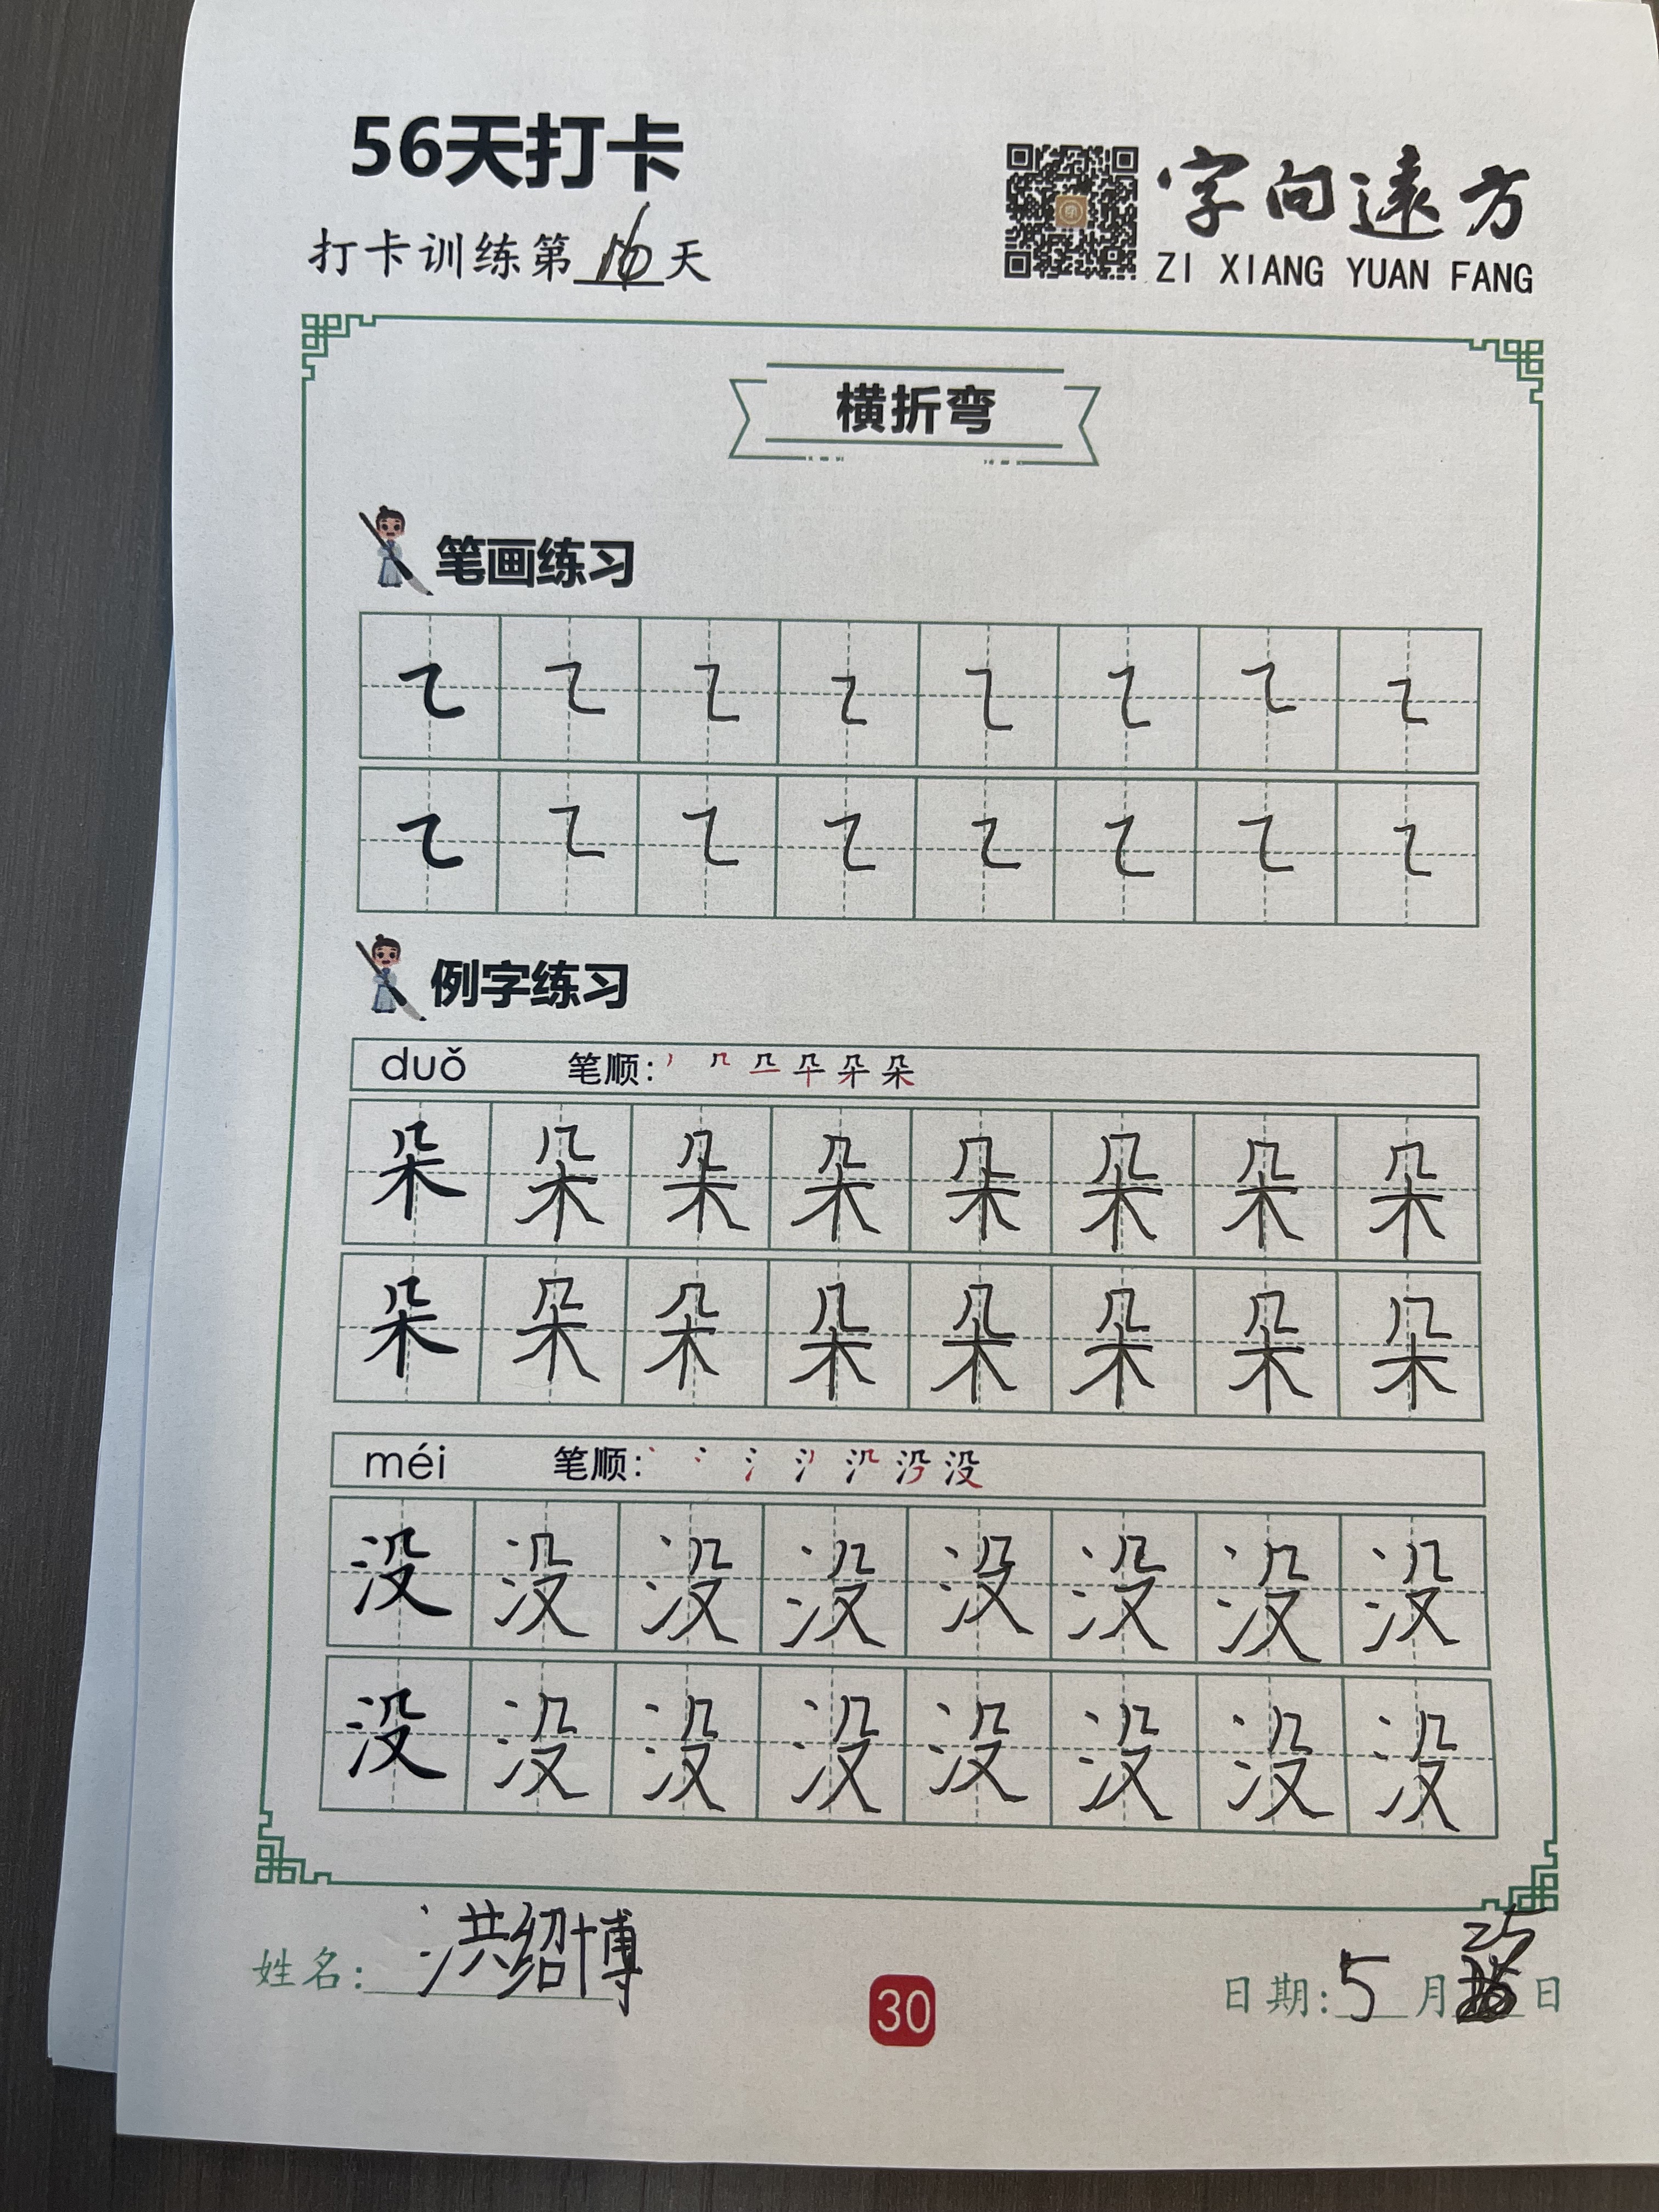 56天打卡
打卡训练第16天
字向遠方
ZI XIANG YUAN FANG
横折弯
笔画练习
㇍ ㇍ ㇍ ㇍ ㇍ ㇍ ㇍ ㇍
㇍ ㇍ ㇍ ㇍ ㇍ ㇍ ㇍ ㇍
例字练习
duǒ 笔顺：
朵 朵 朵 朵 朵 朵 朵 朵
朵 朵 朵 朵 朵 朵 朵 朵
méi 笔顺：
没 没 没 没 没 没 没 没
没 没 没 没 没 没 没 没
姓名：洪绍博
30
日期：5月25日